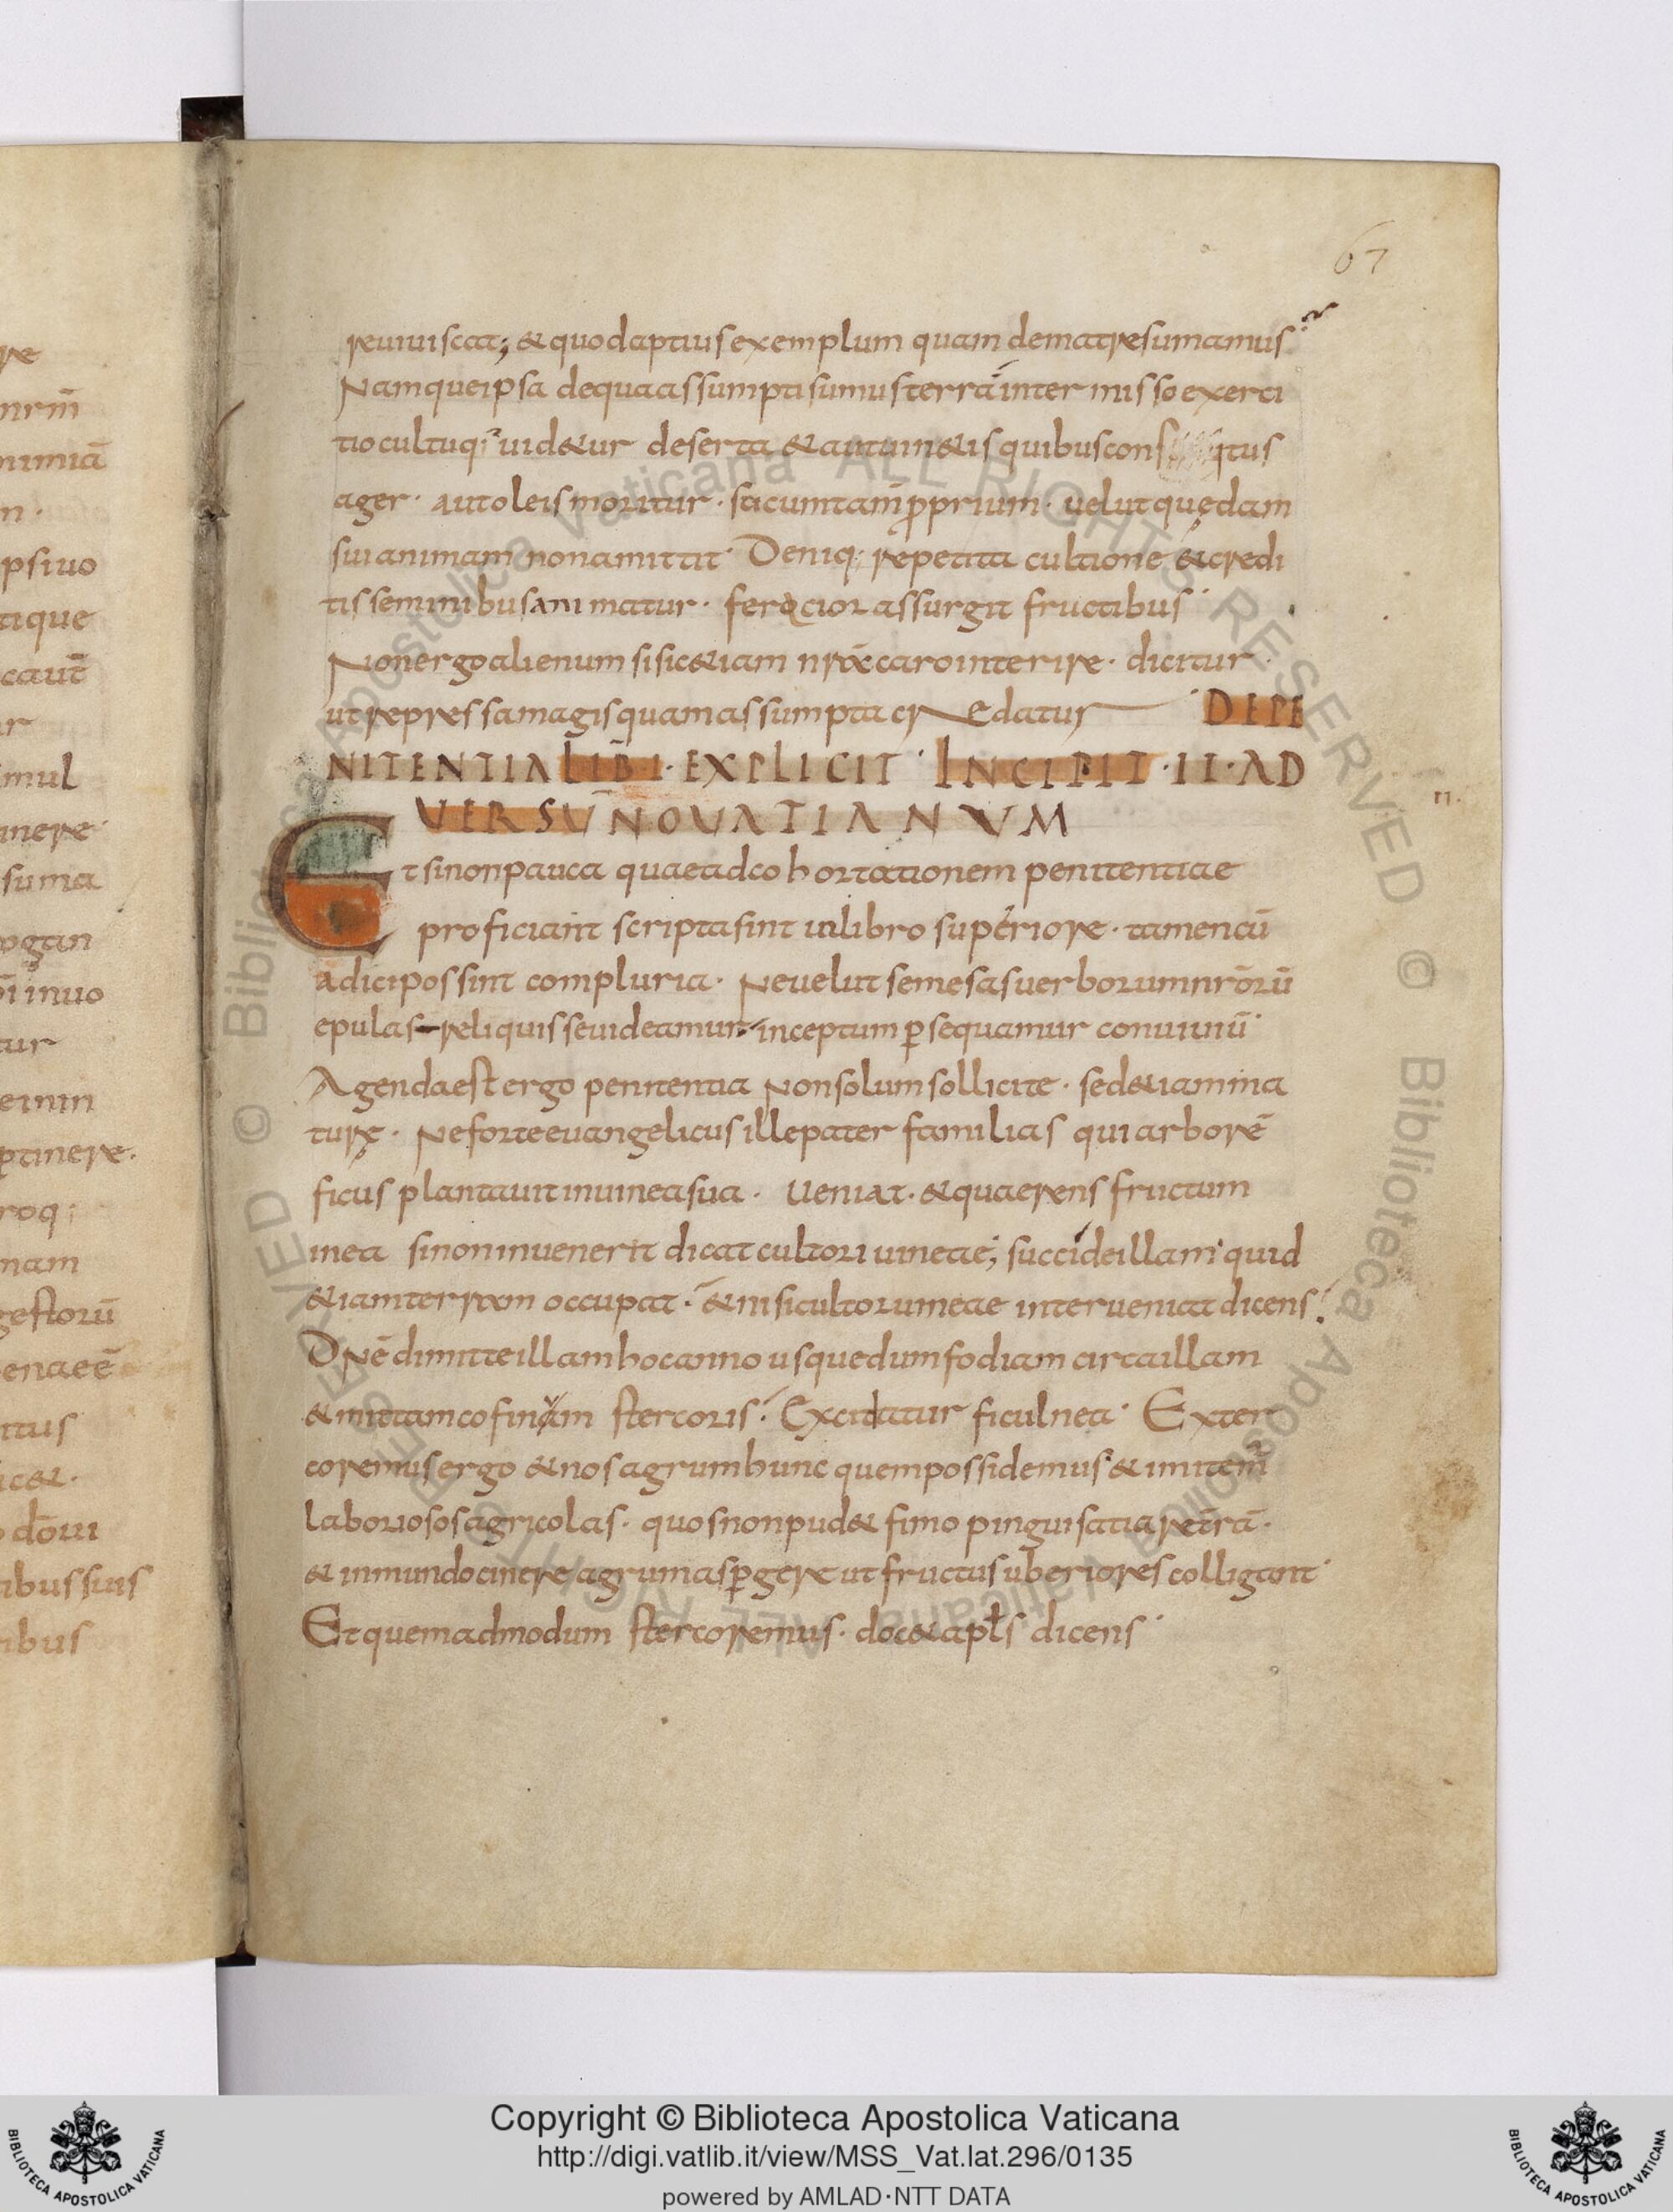 67
reuiuiscat; & quod aptius exemplum quam de matre sumamus
Namque ipsa de qua assumpti sumus terra intermisso exerci
tio cultuq; uid&ur deserta & aut uin&is quibus cons itus
ager · aut oleis moritur · sucum tam̄ ꝓprium · uelut quędam
sui animam non amittit · Deniq; repetita cultione & credi
tis seminibus animatur · ferocior assurgit fructibus ·
Non ergo alienum si sic &iam nr̄a caro interire · dicitur ·
ut repressa magis quam assumpta cREdatur DE PE
NITENTIA LIB̄ I · EXPLICIT · INCIPIT · II · AD
n.
VERSŪ NOVATIANVM
Et si non pauca quae ad cohortationem penitentiae
proficiant scripta sint in libro superiore · tamen cū
adici possint compluria · Ne uelut semesas uerborum nr̄orū
epulas reliquisse uideamur inceptum ꝑsequamur conuiuiū ·
Agenda est ergo penitentia Non solum sollicite · sed &iam ma
ture · Ne forte euangelicus ille pater familias qui arborē
ficus plantauit in uinea sua · Ueniat · & quaerens fructum
in ea si non inuenerit dicat cultori uineae; succide illam quid
&iam terram occupat · & nisi cultor uineae interueniat dicens
DNē dimitte illam hoc anno usque dum fodiam circa illam
& mittam cofinum stercoris · Excidatur ficulnea · Exter
coremus ergo & nos agrum hunc quem possidemus & imitem̄
laboriosos agricolas · quos non pud& fimo pingui satiare tr̄rā ·
& inmundo cinere agrum asꝑgere ut fructus uberiores colligant ·
Et quemadmodum stercoremus · doc& apl̄s dicens ·
Copyright © Biblioteca Apostolica Vaticana
http://digi.vatlib.it/view/MSS_Vat.lat.296/0135
powered by AMLAD·NTT DATA
BIBLIOTECA APOSTOLICA VATICANA
BIBLIOTECA APOSTOLICA VATICANA
© Biblioteca Apostolica Vaticana ALL RIGHTS RESERVED
© Biblioteca Apostolica Vaticana ALL RIGHTS RESERVED